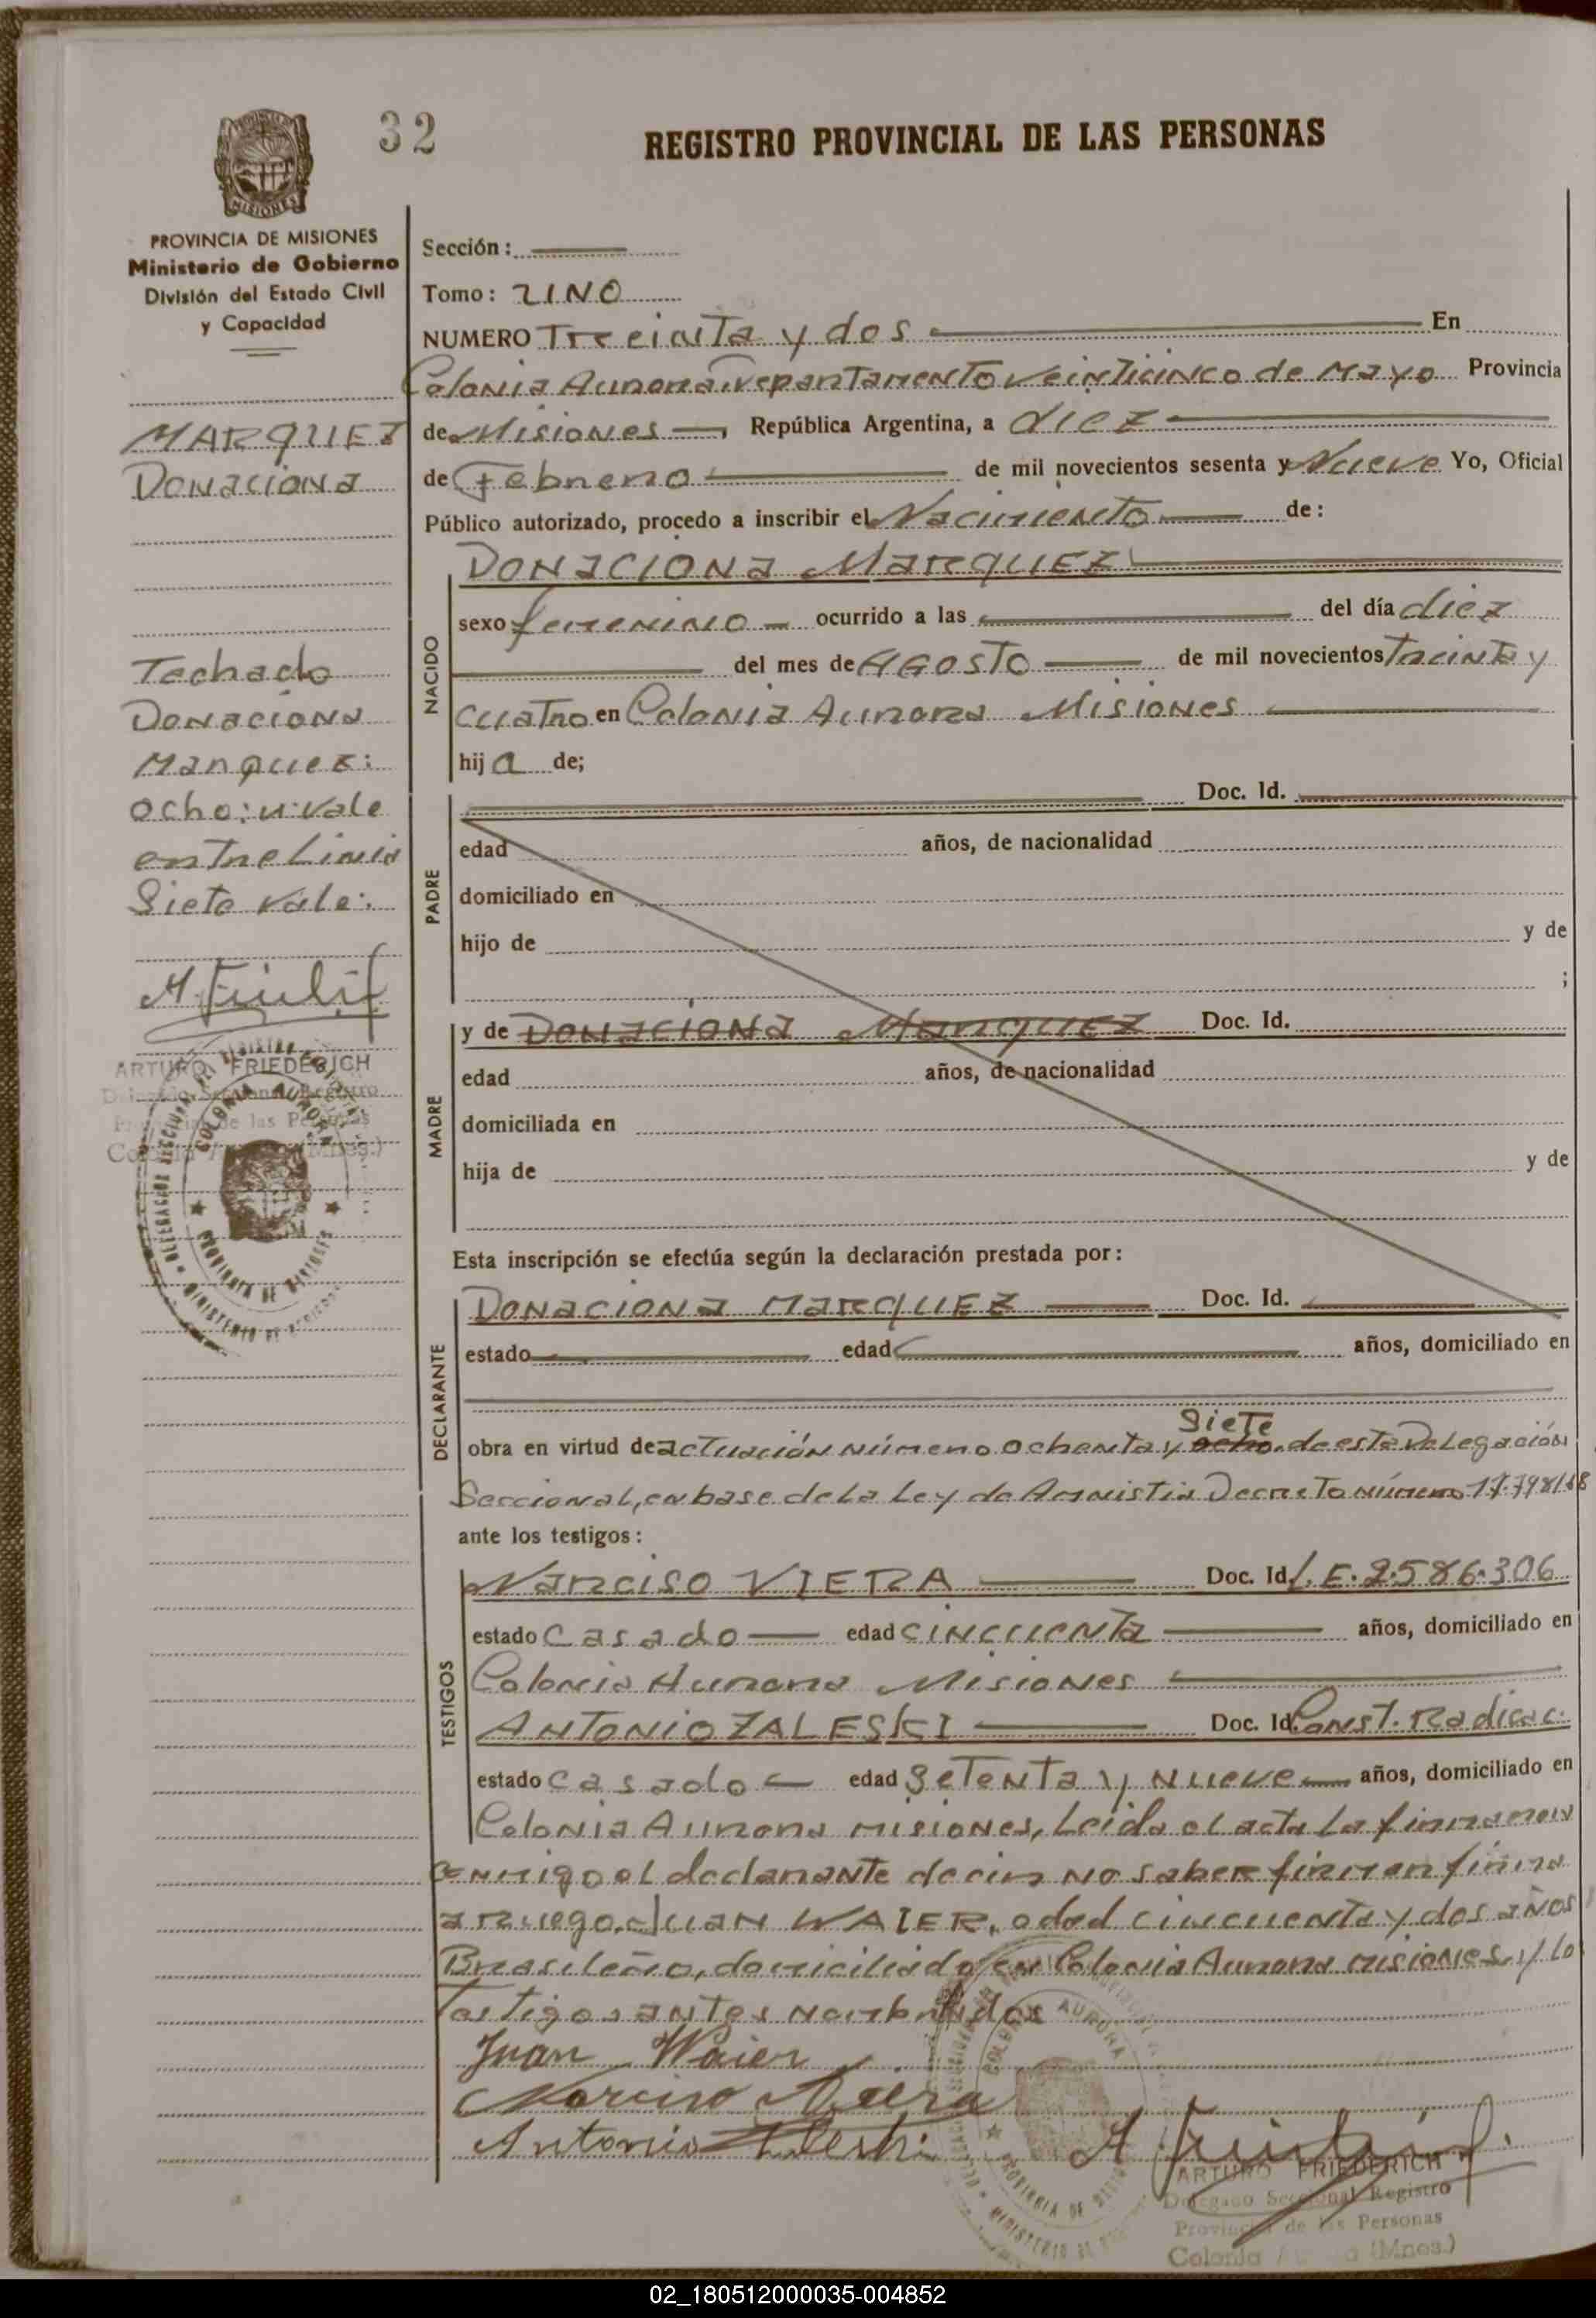 32
REGISTRO PROVINCIAL DE LAS PERSONAS
MISIONES
PROVINCIA DE MISIONES
Ministerio de Gobierno
División del Estado Civil
y Capacidad
MARQUEZ
Donaciona
Techado
Donaciona
Marquez:
ocho: u: vale
entre Linia
Siete vale:.
ARTURO FRIEDERICH
Delegado Seccional Registro
Provincial de las Personas
Colonia (Mnes.)
COLONIA AURORA
PROVINCIA DE MISIONES
Sección:
Tomo: UNO
NUMERO Treeinta y dos En
Colonia Aurora Departamento Veinticinco de Mayo Provincia
de Misiones, República Argentina, a diez
de Febrero de mil novecientos sesenta y Nueve Yo, Oficial
Público autorizado, procedo a inscribir el Nacimiento de:
NACIDO
Donaciona Marquez
sexo femenino ocurrido a las del día diez
del mes de AGosto de mil novecientos Treinta y
cuatro en Colonia Aurora Misiones
hija de;
PADRE
Doc. Id.
edad años, de nacionalidad
domiciliado en
hijo de y de
;
MADRE
y de Donaciona Marquez Doc. Id.
edad años, de nacionalidad
domiciliada en
hija de y de
Esta inscripción se efectúa según la declaración prestada por:
DECLARANTE
Donaciona Marquez Doc. Id.
estado edad años, domiciliado en
Siete
obra en virtud de actuación número ochenta y ocho de esta Delegación
Seccional, en base de la Ley de Amnistia Decreto número 17.798/68
ante los testigos:
TESTIGOS
Narciso VIERA Doc. Id. L.E. 2.586.306
estado Casado edad cincuenta años, domiciliado en
Colonia Aurora Misiones
ANTONIO ZALESKI Doc. Id. Const. Radicac.
estado casado edad Setenta y Nueve años, domiciliado en
Colonia Aurora misiones, Leida el acta La firmaron
conmigo el declarante decir no saber firmar firma
a ruego Juan WAIER, edad cincuenta y dos años
Brasileño, domiciliado en Colonia Aurora misiones y lo
Testigos antes nombrados
Juan Waier
Narciso Viera
Antonio Zaleski
COLONIA AURORA
PROVINCIA DE
ARTURO FRIEDERICH
Delegado Seccional Registro
Provincial de las Personas
Colonia (Mnes.)
02_180512000035-004852